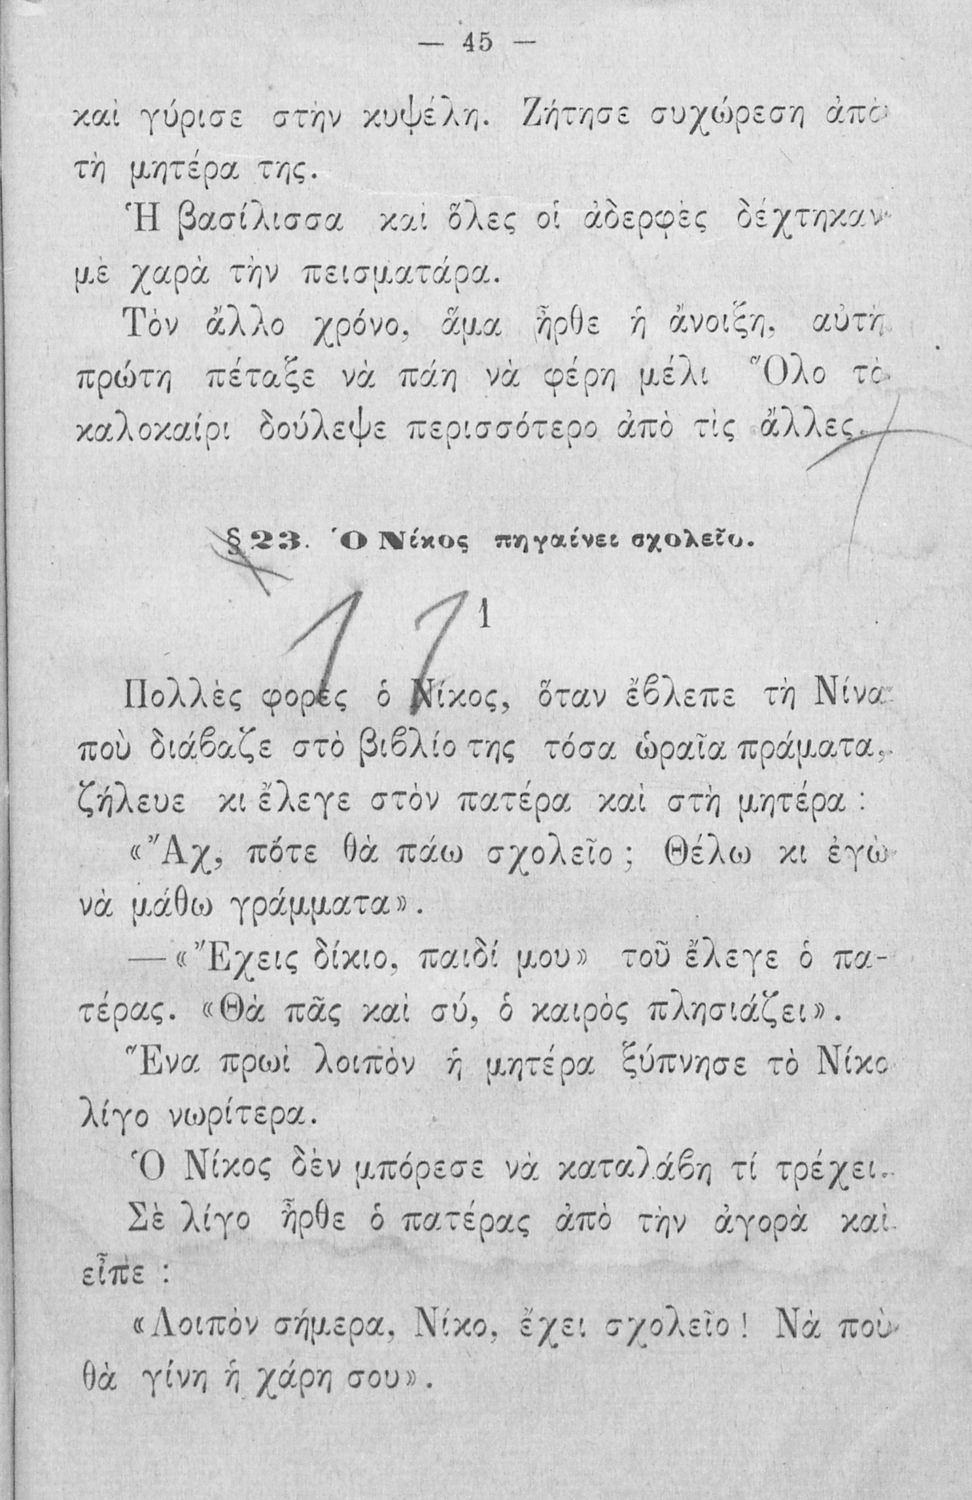 — 45 —
καὶ γύρισε στὴν κυψέλη. Ζήτησε συχώρεση ἀπὸ
τὴ μητέρα της.
Ἡ βασίλισσα καὶ ὅλες οἱ ἀδερφὲς δέχτηκαν
μὲ χαρὰ τὴν πεισματάρα.
Τὸν ἄλλο χρόνο, ἅμα ἦρθε ἡ ἄνοιξη, αὐτὴ
πρώτη πέταξε νὰ πάη νὰ φέρη μέλι Ὅλο τὸ
καλοκαίρι δούλεψε περισσότερο ἀπὸ τὶς ἄλλες.
§ 23. Ὁ Νίκος πηγαίνει σχολεῖο.
1
Πολλὲς φορὲς ὁ Νίκος, ὅταν ἔβλεπε τὴ Νίνα
ποὺ διάβαζε στὸ βιβλίο της τόσα ὡραῖα πράματα,
ζήλευε κι ἔλεγε στὸν πατέρα καὶ στὴ μητέρα :
«Ἄχ, πότε θὰ πάω σχολεῖο ; Θέλω κι ἐγὼ
νὰ μάθω γράμματα».
— «Ἔχεις δίκιο, παιδί μου» τοῦ ἔλεγε ὁ πα-
τέρας. «Θὰ πᾶς καὶ σύ, ὁ καιρὸς πλησιάζει».
Ἕνα πρωὶ λοιπὸν ἡ μητέρα ξύπνησε τὸ Νίκο
λίγο νωρίτερα.
Ὁ Νίκος δὲν μπόρεσε νὰ καταλάβη τί τρέχει.
Σὲ λίγο ἦρθε ὁ πατέρας ἀπὸ τὴν ἀγορὰ καὶ
εἶπε :
«Λοιπὸν σήμερα, Νίκο, ἔχει σχολεῖο! Νὰ ποὺ
θὰ γίνη ἡ χάρη σου».